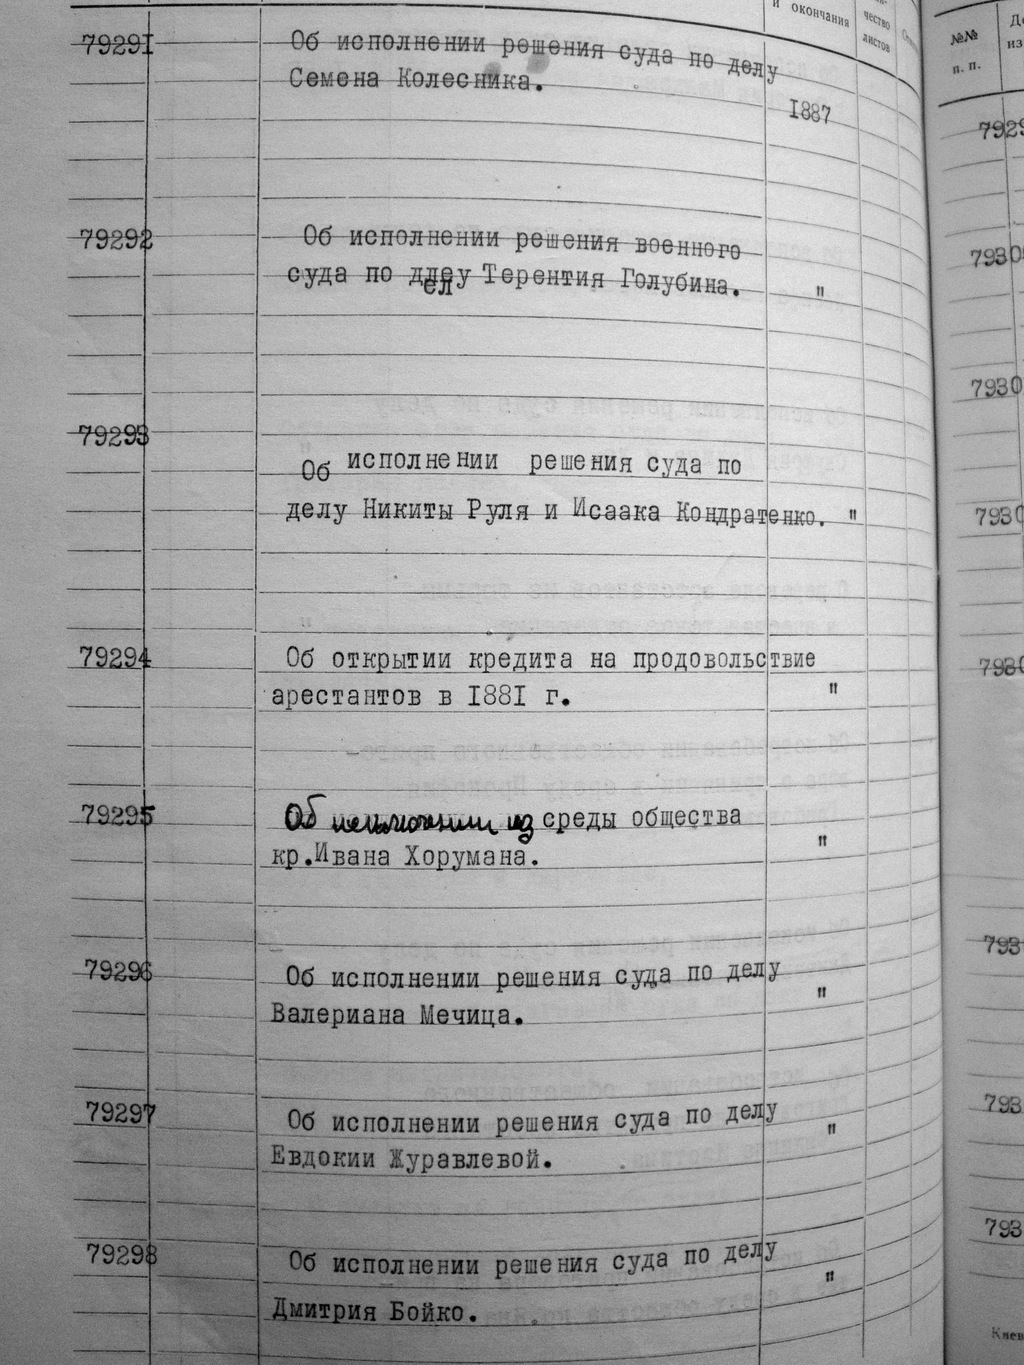 и окончания
чество
листов
№№
п. п.
79291 Об исполнении решения суда по делу
Семена Колесника.
1887
79292 Об исполнении решения военного
суда по длеу Терентия Голубина. "
ел
79293
Об исполнении решения суда по
делу Никиты Руля и Исаака Кондратенко. "
79294 Об открытии кредита на продовольствие
арестантов в 1881 г. "
79295 Об исключении из среды общества
кр.Ивана Хорумана. "
79296 Об исполнении решения суда по делу
Валериана Мечица. "
79297 Об исполнении решения суда по делу
Евдокии Журавлевой. "
79298 Об исполнении решения суда по делу
Дмитрия Бойко. "